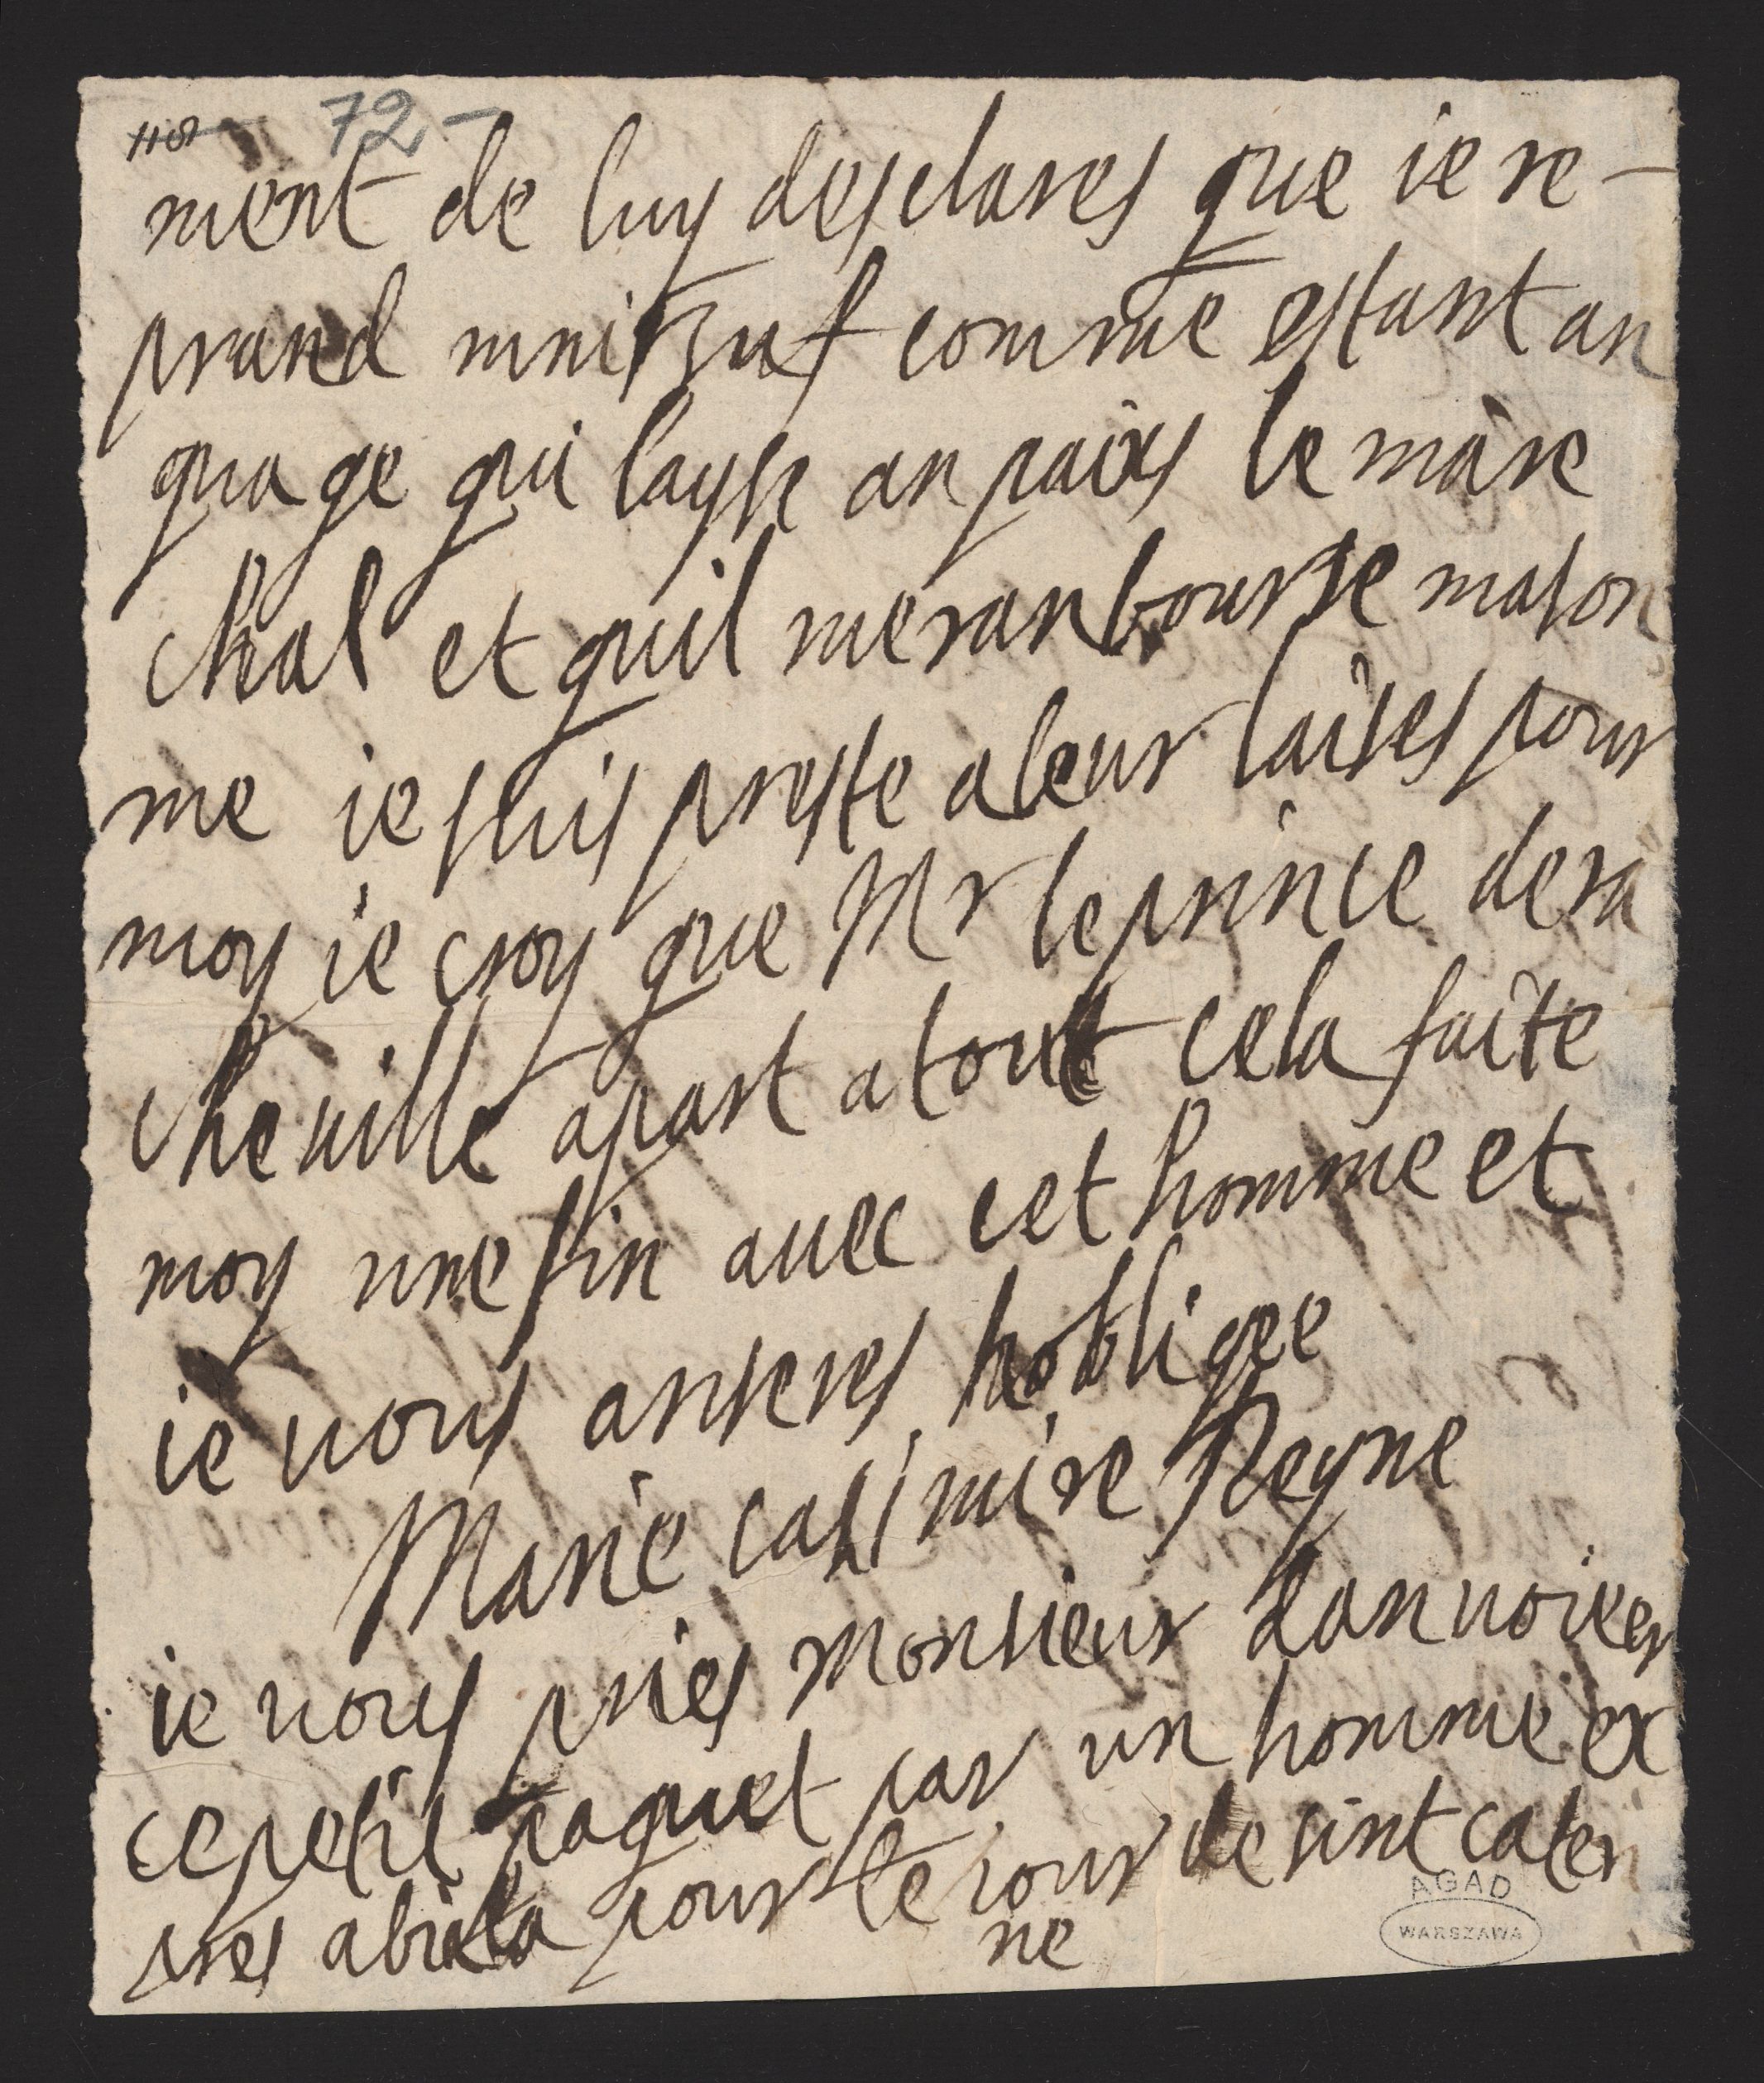 118 72-
ment de luy desclares que ie re-
prand comme estant an
gua ge qui layse an paixs le mare
chal et quil me ranbourse mason
me ie suis preste a leur laises pour
moy ie croy que Mr le prince de ra
cheuille apart a tout cela faite
moy une fin auec cet homme et
ie vous anseres hobligee
Marie casimire Reyne
ie vous pries Monsieur dan voier
ce petit paquet par un homme ex
pres a biala pour le iour de sint cater
ne
AGAD
WARSZAWA